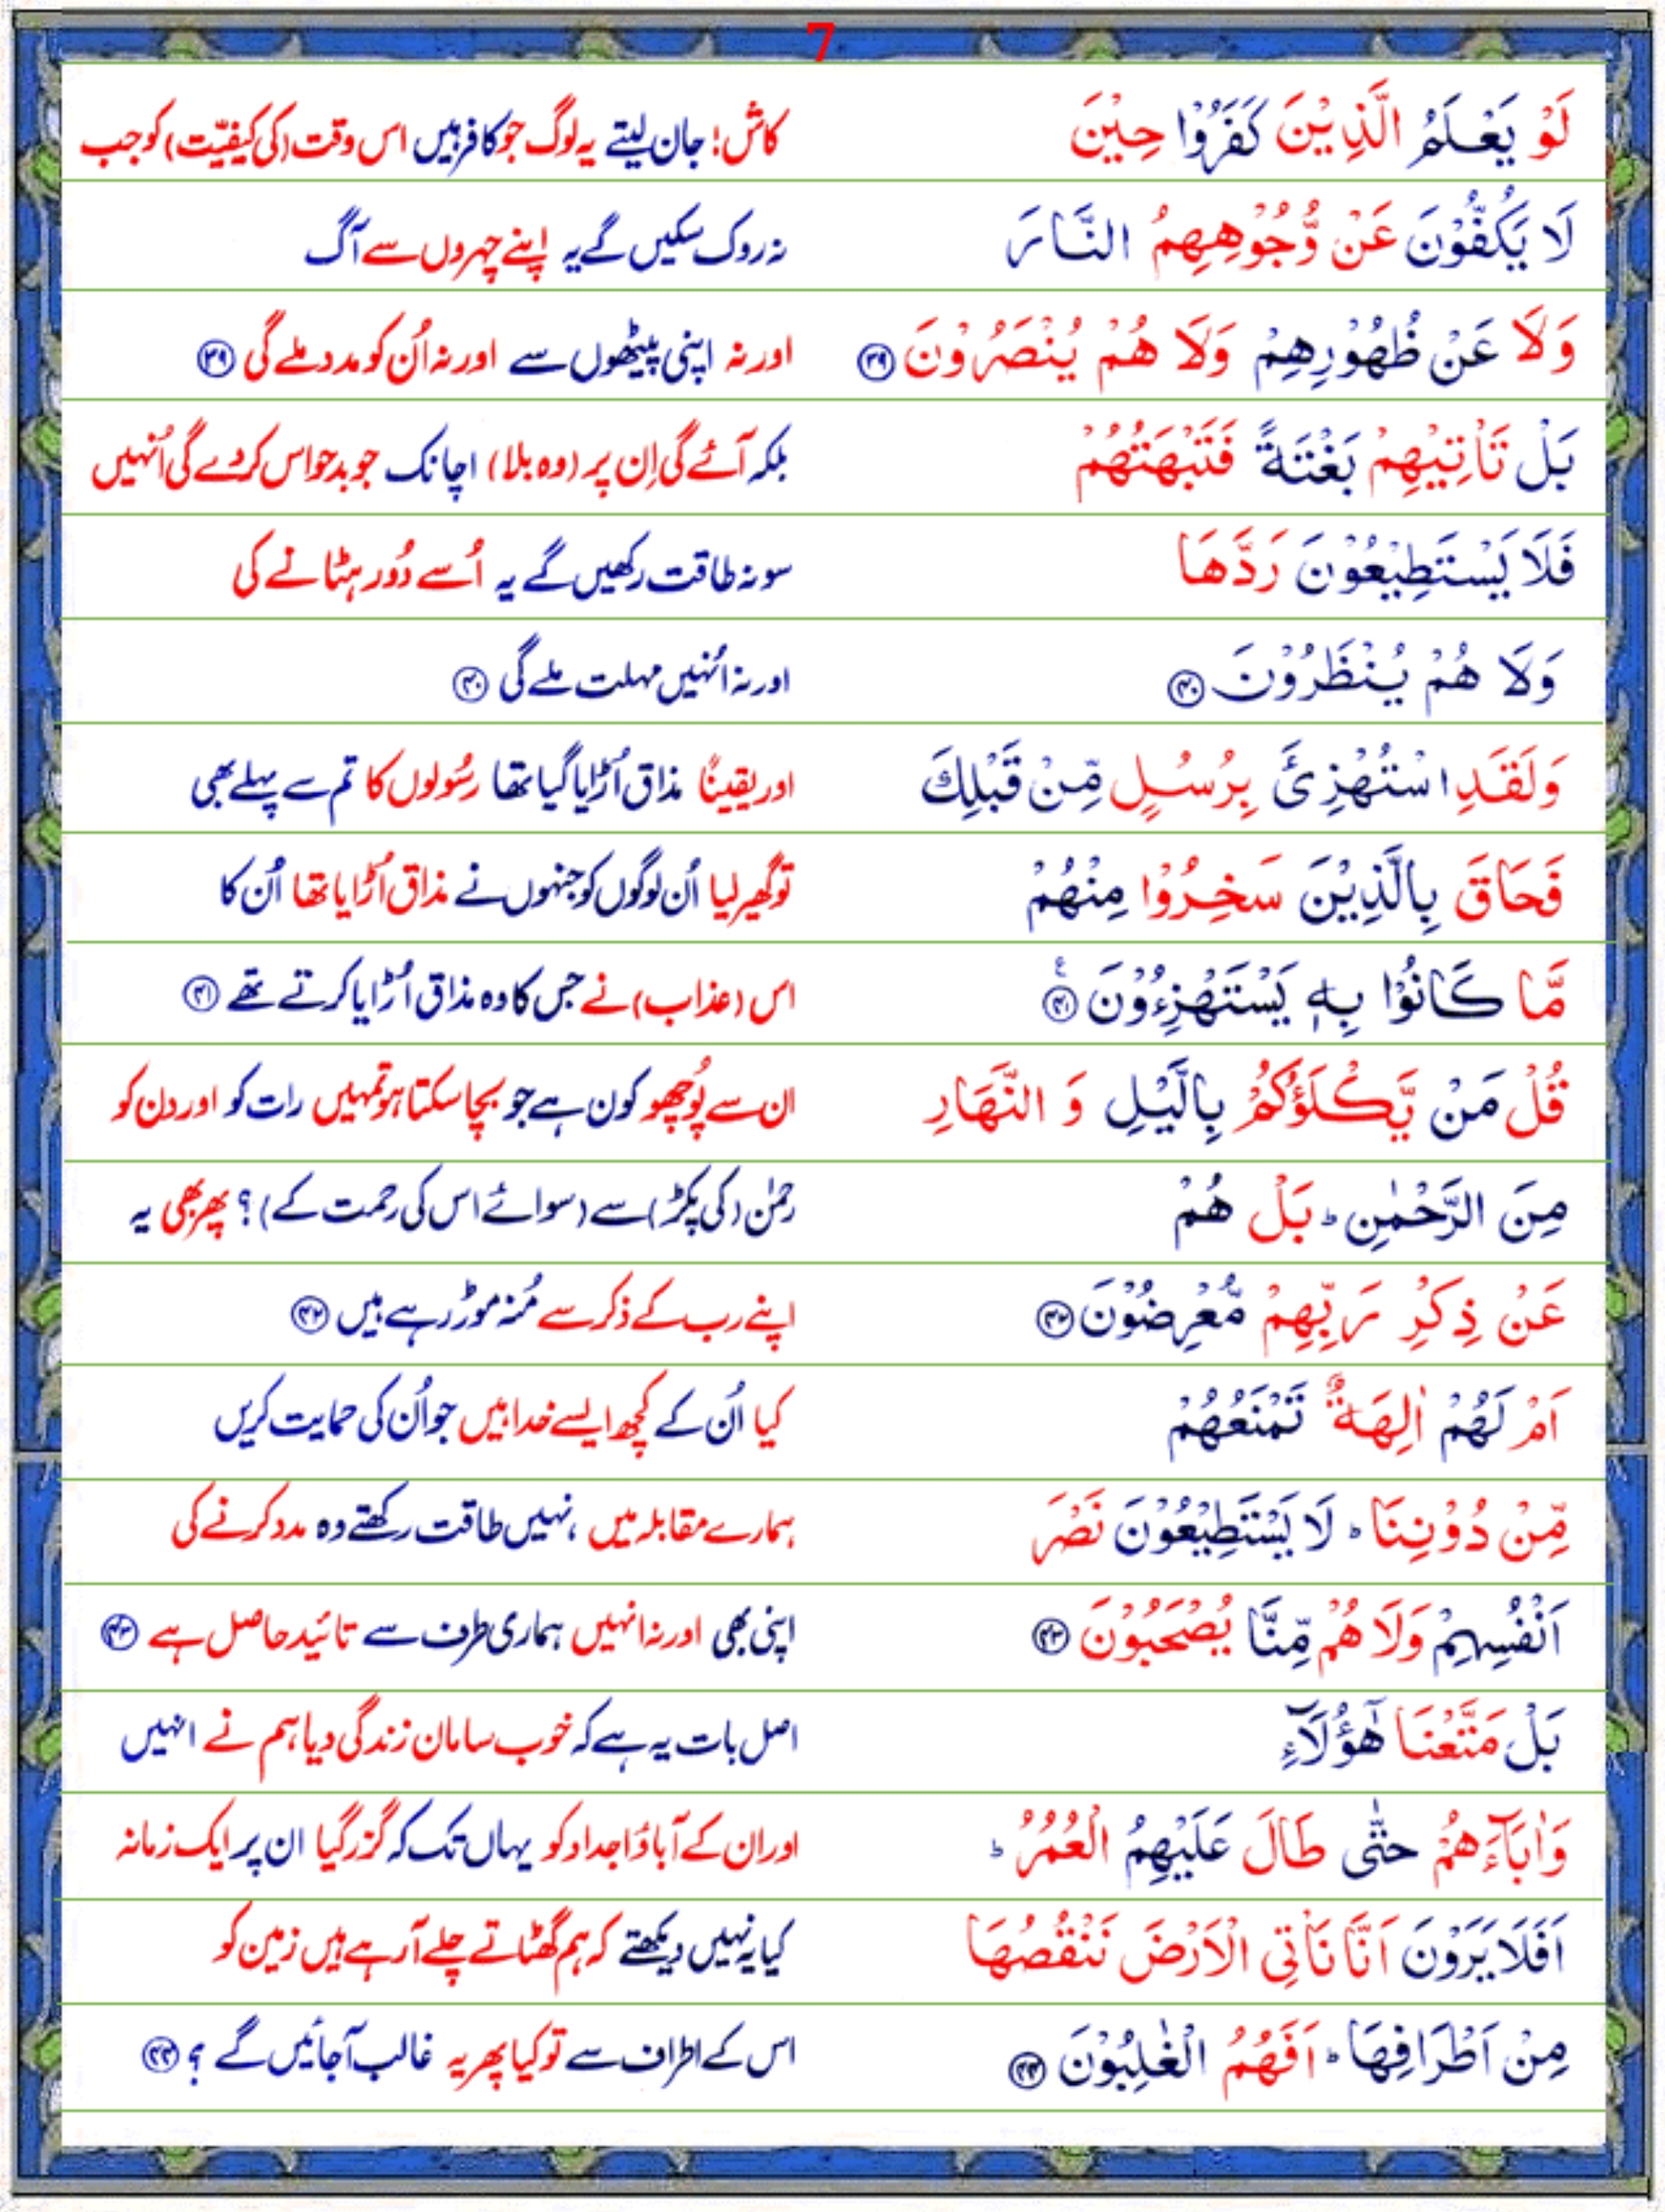 7
لَوْ يَعْلَمُ الَّذِيْنَ كَفَرُوْا حِيْنَ کاش! جان لیتے یہ لوگ جو کافر ہیں اس وقت (کی کیفیّت) کو جب
لَا يَكُفُّوْنَ عَنْ وُّجُوْهِهِمُ النَّارَ نہ روک سکیں گے یہ اپنے چہروں سے آگ
وَلَا عَنْ ظُهُوْرِهِمْ وَلَا هُمْ يُنْصَرُوْنَ ۳۹ اور نہ اپنی پیٹھوں سے اور نہ اُن کو مدد ملے گی ۳۹
بَلْ تَاْتِيْهِمْ بَغْتَةً فَتَبْهَتُهُمْ بلکہ آئے گی اِن پر (وہ بلا) اچانک جو بدحواس کردے گی اُنہیں
فَلَا يَسْتَطِيْعُوْنَ رَدَّهَا سو نہ طاقت رکھیں گے یہ اُسے دُور ہٹانے کی
وَلَا هُمْ يُنْظَرُوْنَ ۴۰ اور نہ اُنہیں مہلت ملے گی ۴۰
وَلَقَدِ اسْتُهْزِئَ بِرُسُلٍ مِّنْ قَبْلِكَ اور یقیناً مذاق اُڑایا گیا تھا رسُولوں کا تم سے پہلے بھی
فَحَاقَ بِالَّذِيْنَ سَخِرُوْا مِنْهُمْ تو گھیر لیا اُن لوگوں کو جنہوں نے مذاق اُڑایا تھا اُن کا
مَّا كَانُوْا بِهٖ يَسْتَهْزِءُوْنَ ۴۱ ع اس (عذاب) نے جس کا وہ مذاق اُڑایا کرتے تھے ۴۱
قُلْ مَنْ يَّكْلَؤُكُمْ بِالَّيْلِ وَ النَّهَارِ ان سے پُوچھو کون ہے جو بچا سکتا ہو تمہیں رات کو اور دن کو
مِنَ الرَّحْمٰنِ ؕ بَلْ هُمْ رحمٰن (کی پکڑ) سے (سوائے اس کی رحمت کے)؟ پھر بھی یہ
عَنْ ذِكْرِ رَبِّهِمْ مُّعْرِضُوْنَ ۴۲ اپنے رب کے ذکر سے مُنہ موڑ رہے ہیں ۴۲
اَمْ لَهُمْ اٰلِهَةٌ تَمْنَعُهُمْ کیا اُن کے کچھ ایسے خدا ہیں جو اُن کی حمایت کریں
مِّنْ دُوْنِنَا ؕ لَا يَسْتَطِيْعُوْنَ نَصْرَ ہمارے مقابلہ میں، نہیں طاقت رکھتے وہ مدد کرنے کی
اَنْفُسِهِمْ وَلَا هُمْ مِّنَّا يُصْحَبُوْنَ ۴۳ اپنی بھی اور نہ انہیں ہماری طرف سے تائید حاصل ہے ۴۳
بَلْ مَتَّعْنَا هٰٓؤُلَآءِ اصل بات یہ ہے کہ خوب سامان زندگی دیا ہم نے انہیں
وَاٰبَآءَهُمْ حَتّٰى طَالَ عَلَيْهِمُ الْعُمُرُ ؕ اور ان کے آباؤ اجداد کو یہاں تک کہ گزر گیا ان پر ایک زمانہ
اَفَلَا يَرَوْنَ اَنَّا نَاْتِى الْاَرْضَ نَنْقُصُهَا کیا یہ نہیں دیکھتے کہ ہم گھٹاتے چلے آ رہے ہیں زمین کو
مِنْ اَطْرَافِهَا ؕ اَفَهُمُ الْغٰلِبُوْنَ ۴۴ اس کے اطراف سے تو کیا پھر یہ غالب آجائیں گے؟ ۴۴